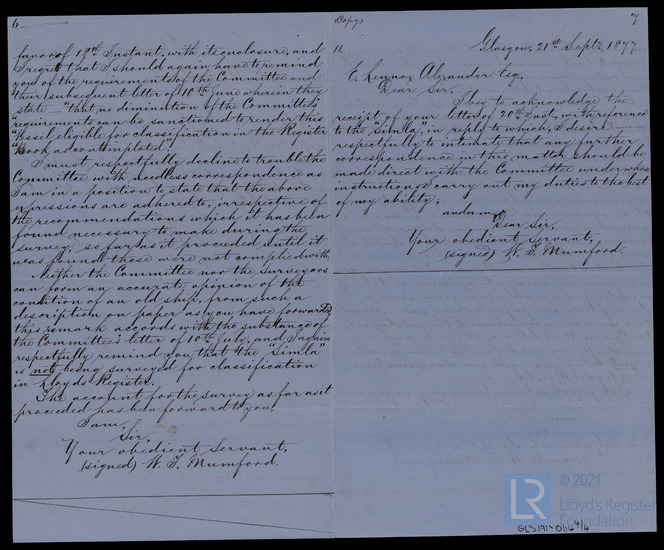 6.
favor of 18th Instant, with its enclosure, and
I regret that I should again have to remind
you of the requirements of the Committee and
their subsequent letter of 10th June wherein they
state — "that no diminution of the Committee's
"requirements can be sanctioned to render this
"vessel eligible for classification in the Register
"Book, as contemplated"
I must respectfully decline to trouble the
Committee with needless correspondence as
I am in a position to state that the above
expressions are adhered to, irrespective of
the recommendations which it has been
found necessary to make during the
survey, so far as it proceeded until it
was found these were not complied with
Neither the Committee nor the Surveyors
can form an accurate opinion of the
condition of an old ship, from such a
description on paper as you have forwarded,
this remark accords with the substance of
the Committee's letter of 10th July, and I again
respectfully remind you that the "Simla"
is not being surveyed for classification
in Lloyds Register.
The account for the survey as far as it
proceeded has been forward to you.
I am,
Sir,
Your obedient Servant,
(signed) W. T. Mumford.
(Copy)
7.
11.
Glasgow, 21st Septr 1877.
E. Lennox Alexander Esq.,
Dear Sir,
I beg to acknowledge the
receipt of your letter of 20th Inst., with reference
to the "Simla", in reply to which, I desire
respectfully to intimate that any further
correspondence in this matter should be
made direct with the Committee under whose
instructions I carry out my duties to the best
of my ability;
and am
Dear Sir,
Your obedient Servant,
(signed) W. T. Mumford.
© 2021
LR
Lloyd's Register
Foundation
GLS191-0114 4/4